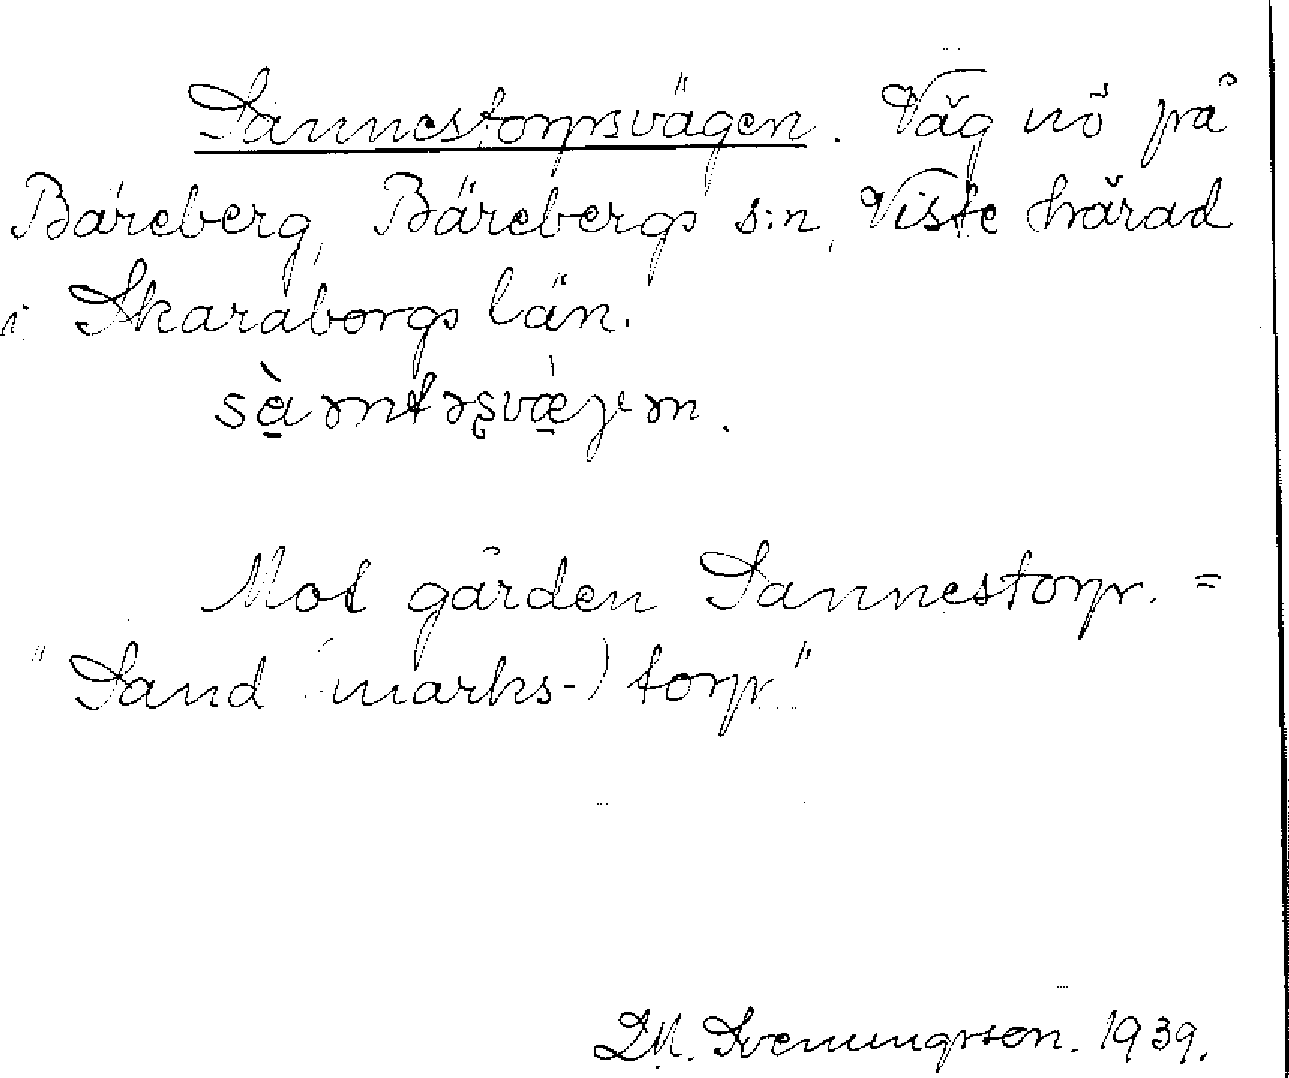 Sannestorpsvägen. Väg nö på
Bäreberg, Bärebergs s:n, Viste härad
i Skaraborgs län.
Mot gården Sannestorp. =
"Sand (marks-) torp."
D.M. Svenungsson. 1939.